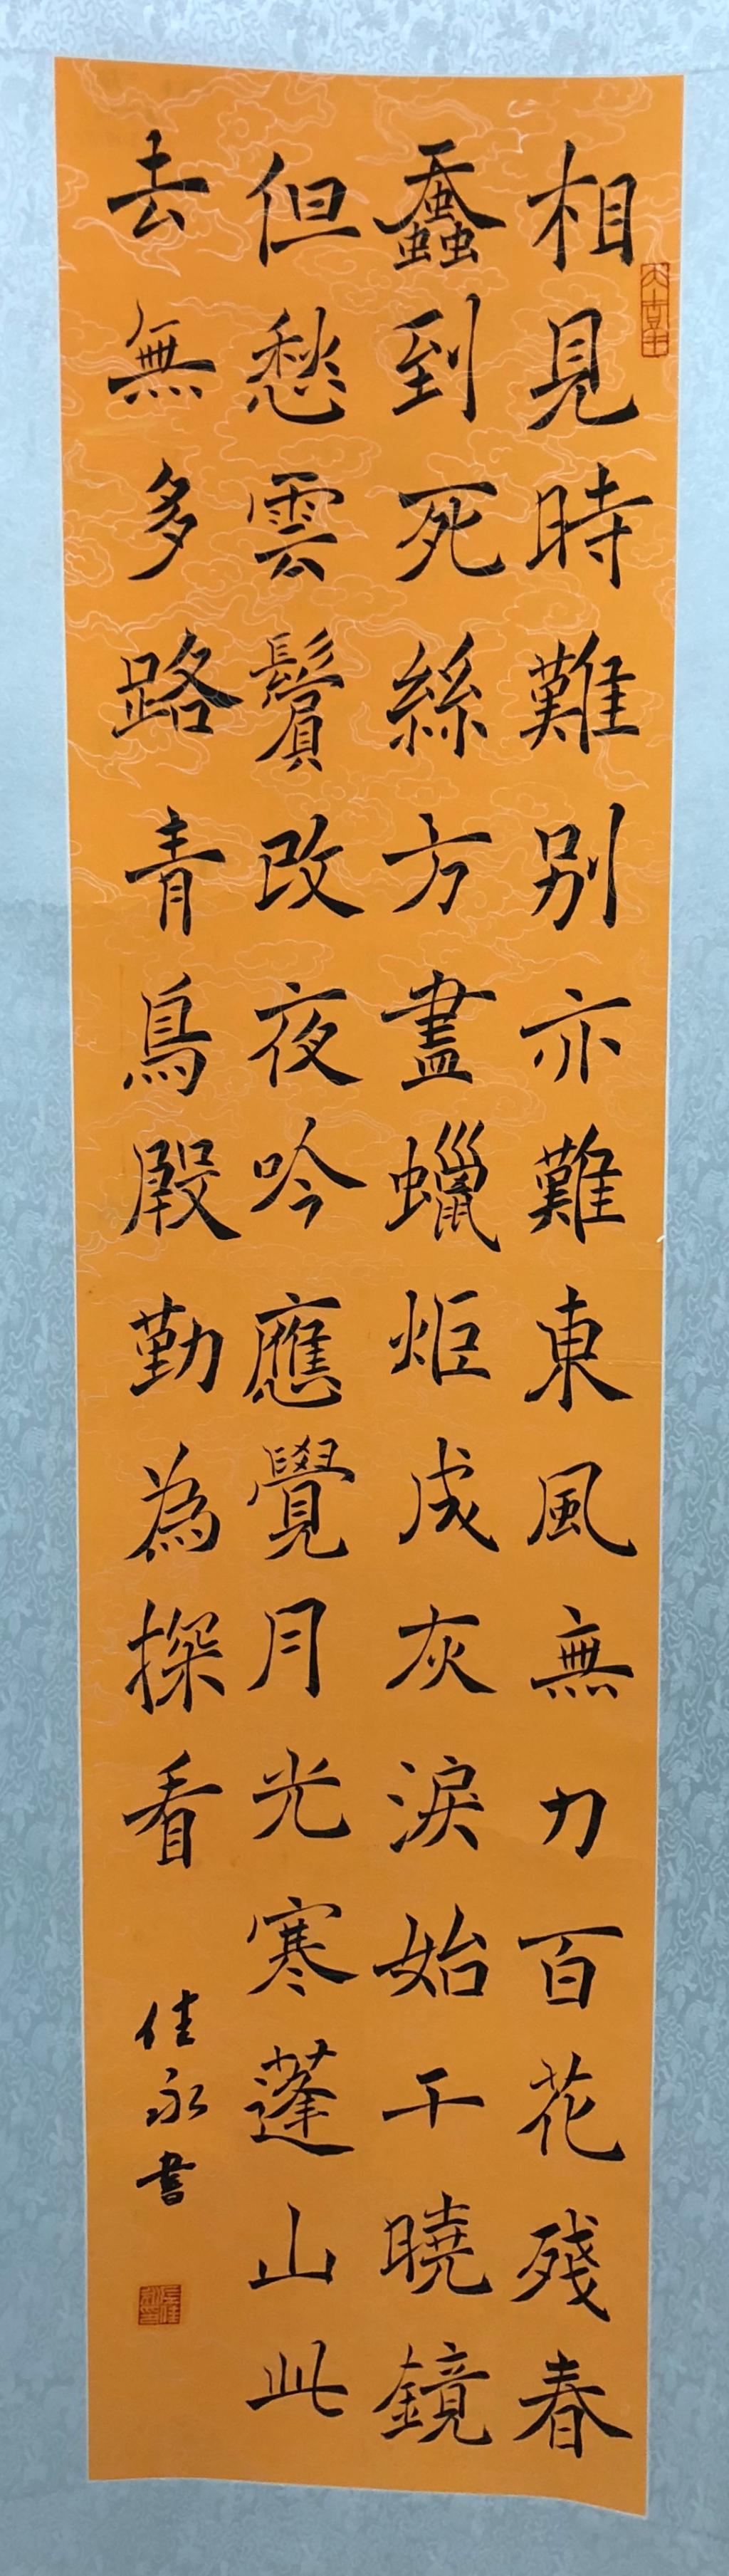 相見時難別亦難東風無力百花殘春
蠶到死絲方盡蠟炬成灰淚始干曉鏡
但愁雲鬢改夜吟應覺月光寒蓬山此
去無多路青鳥殷勤為探看
佳永書